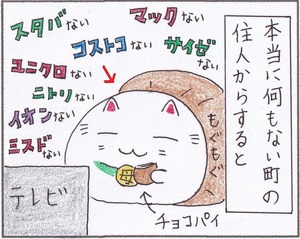 本当に何もない町の
住人からすると
マックない
スタバない
コストコない
サイゼない
ユニクロない
ニトリない
イオンない
ミスドない
もぐもぐ
チョコパイ
テレビ